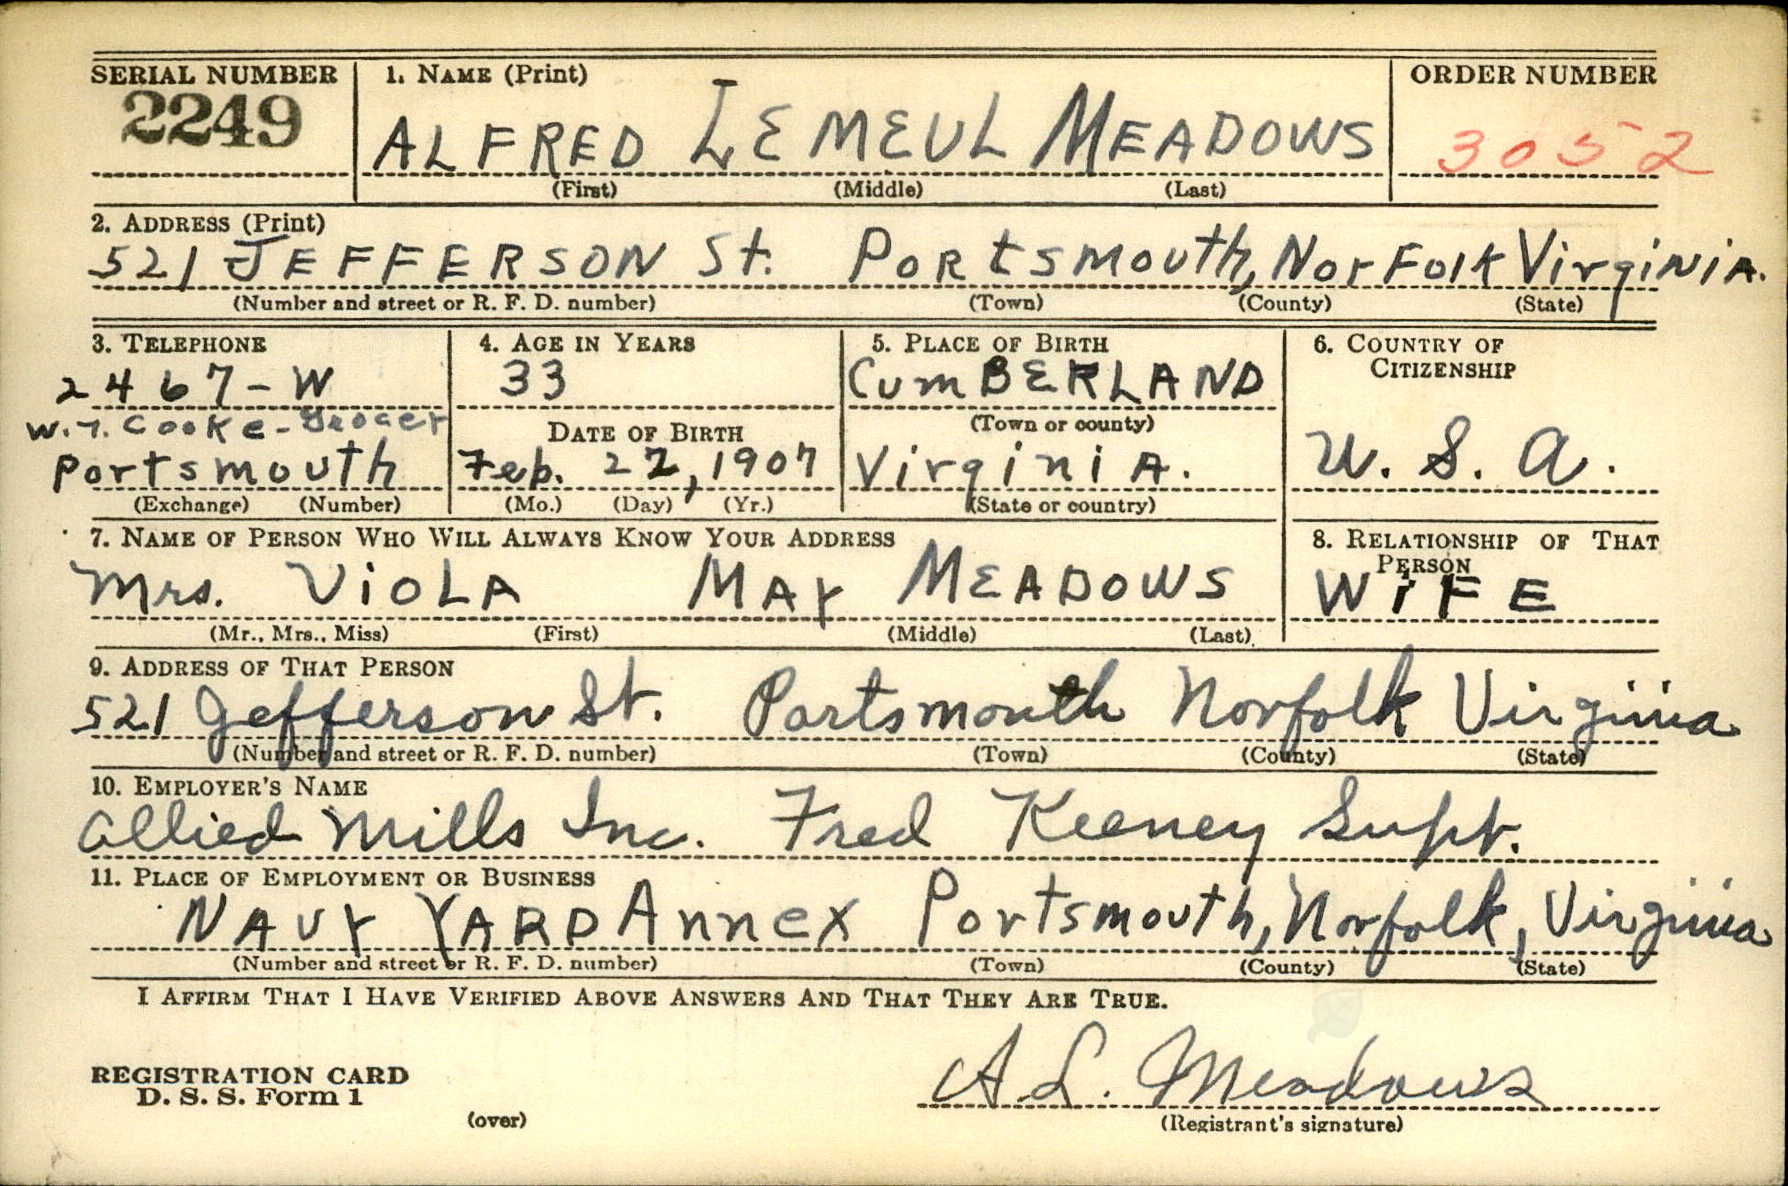 SERIAL NUMBER 1. NAME (Print) ORDER NUMBER
2249 ALFRED LEMEUL MEADOWS 3052
(First) (Middle) (Last)
2. ADDRESS (Print)
521 JEFFERSON St. PORtsmouth, NorFolk VirgiNiA.
(Number and street or R. F. D. number) (Town) (County) (State)
3. TELEPHONE 4. AGE IN YEARS 5. PLACE OF BIRTH 6. COUNTRY OF CITIZENSHIP
2467-W 33 CumBERLAND
W. T. Cooke - Grocer DATE OF BIRTH (Town or county) U. S. A.
Portsmouth Feb. 22, 1907 VirginiA.
(Exchange) (Number) (Mo.) (Day) (Yr.) (State or country)
7. NAME OF PERSON WHO WILL ALWAYS KNOW YOUR ADDRESS 8. RELATIONSHIP OF THAT PERSON
Mrs. ViOLA MAY MEADOWS WiFE
(Mr., Mrs., Miss) (First) (Middle) (Last)
9. ADDRESS OF THAT PERSON
521 Jefferson St. Portsmouth Norfolk Virginia
(Number and street or R. F. D. number) (Town) (County) (State)
10. EMPLOYER'S NAME
Allied Mills Inc. Fred Keeney Supt.
11. PLACE OF EMPLOYMENT OR BUSINESS
NAVY YARD Annex Portsmouth, Norfolk, Virginia
(Number and street or R. F. D. number) (Town) (County) (State)
I AFFIRM THAT I HAVE VERIFIED ABOVE ANSWERS AND THAT THEY ARE TRUE.
REGISTRATION CARD A. L. Meadows
D. S. S. Form 1
(over) (Registrant's signature)